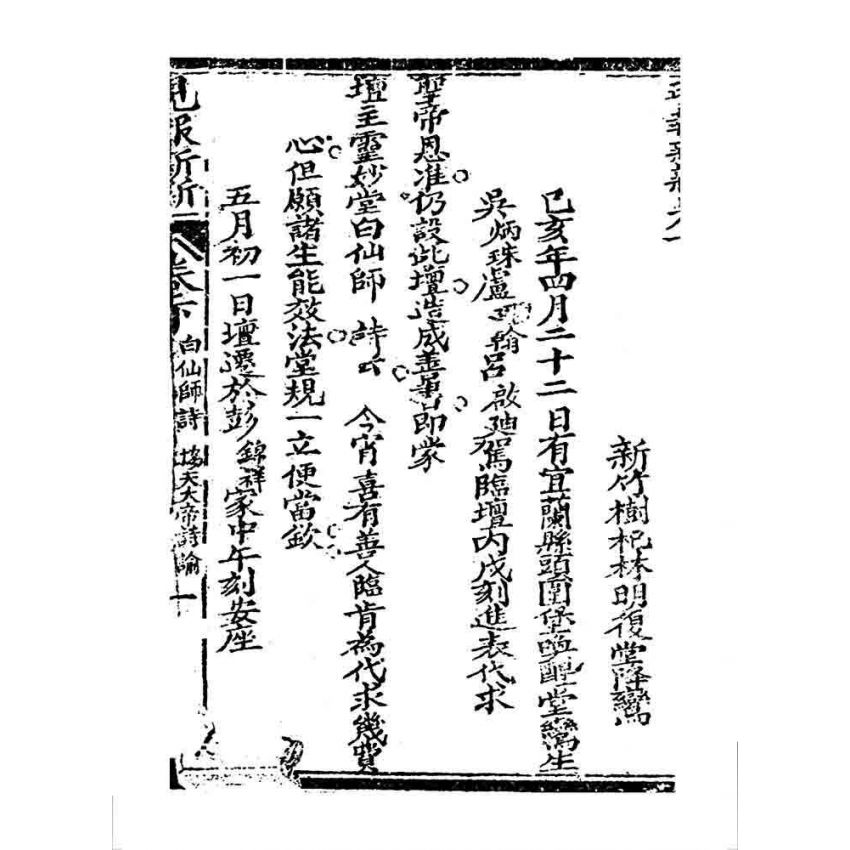 新竹樹杞林明復堂降鸞
己亥年四月二十二日有宜蘭縣頭圍堡喚醒堂鸞生
吳炳珠盧廷翰呂啟迪駕臨壇內戌刻進表代求
聖帝恩准仍設此壇造成善書即蒙
壇主靈妙堂白仙師 詩云 今宵喜有善人臨肯為代求幾費
心但願諸生能效法堂規一立便當欽
五月初一日壇遷於彭錦祥家中午刻安座
現報新新 卷下 白仙師詩 協天大帝詩諭 一